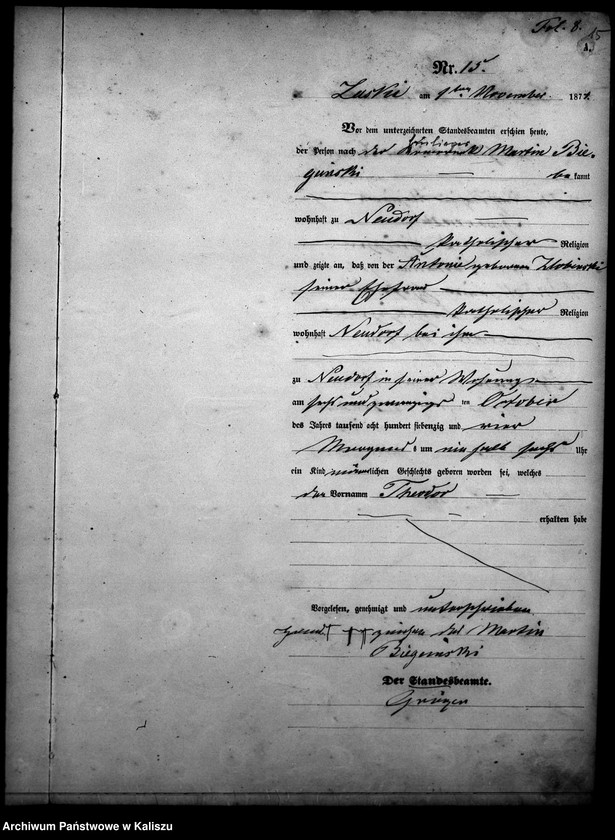 Fol. 8. 15
A.
Nr. 15
Luski am 1ten November 1874
Vor dem unterzeichneten Standesbeamten erschien heute,
der Person nach der Martin Bie-
ganski bekannt
wohnhaft zu Neudorf
katholischer Religion
und zeigte an, daß von der Antonie geborenen
seiner Ehefrau
katholischer Religion
wohnhaft Neudorf bei ihm
zu Neudorf in seiner Wohnung
am sechs und zwanzigsten October
des Jahres tausend acht hundert siebenzig und vier
Morgens um ein halb sechs Uhr
ein Kind männlichen Geschlechts geboren worden sei, welches
den Vornamen Theodor
erhalten habe
Vorgelesen, genehmigt und unterschrieben
Hand ††† zeichen des Martin
Bieganski
Der Standesbeamte.
Krüger
Archiwum Państwowe w Kaliszu